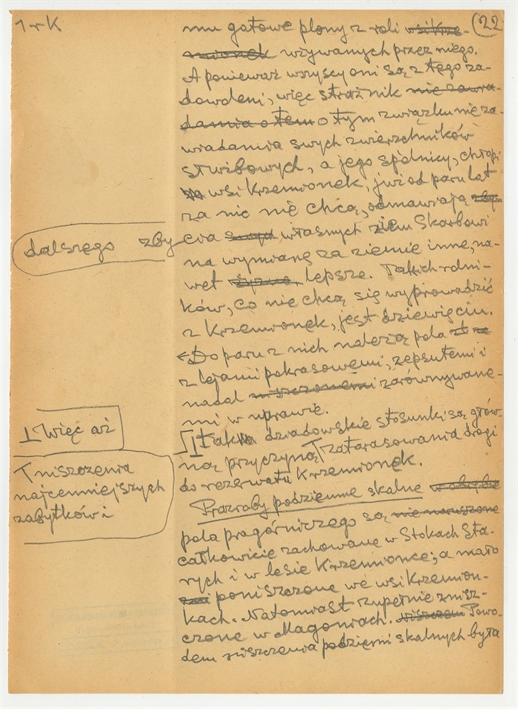 1 r K
22
mu gotowe plony z roli wsi Krze-
mionek używanych przez niego.
A ponieważ wszyscy oni są z tego za-
dowoleni, więc strażnik nie zawia-
damia o tem o tym związku nie za-
wiadamia swych zwierzchników
służbowych, a jego spólnicy, chłopi
wsi Krzemionek, już od paru lat
za nic nie chcą, odmawiają
dalszego zby
cia własnych ziem Skarbowi
na wymianę za ziemie inne, na-
wet lepsze. Takich rolni-
ków, co nie chcą się wyprowadzić
z Krzemionek, jest dziewięciu.
Do paru z nich należą pola
z lejami pokrasowemi, zepsutemi i
nadal niszczonemi zarównywane-
mi w uprawie.
I Więc aż
I tak dziadowskie stosunki są głów-
ną przyczyną T zatarasowania drogi
do rezerwatu Krzemionek.
T niszczenia
najcenniejszych
zabytków i
Przeraby podziemne skalne
pola pragórniczego są nienaruszone
całkowicie zachowane w Stokach Sta-
rych i w lesie Krzemionce; a mało
poniszczone we wsi Krzemion-
kach. Natomiast zupełnie znisz-
czone w Magoniach. Powo-
dem niszczenia podziemi skalnych była